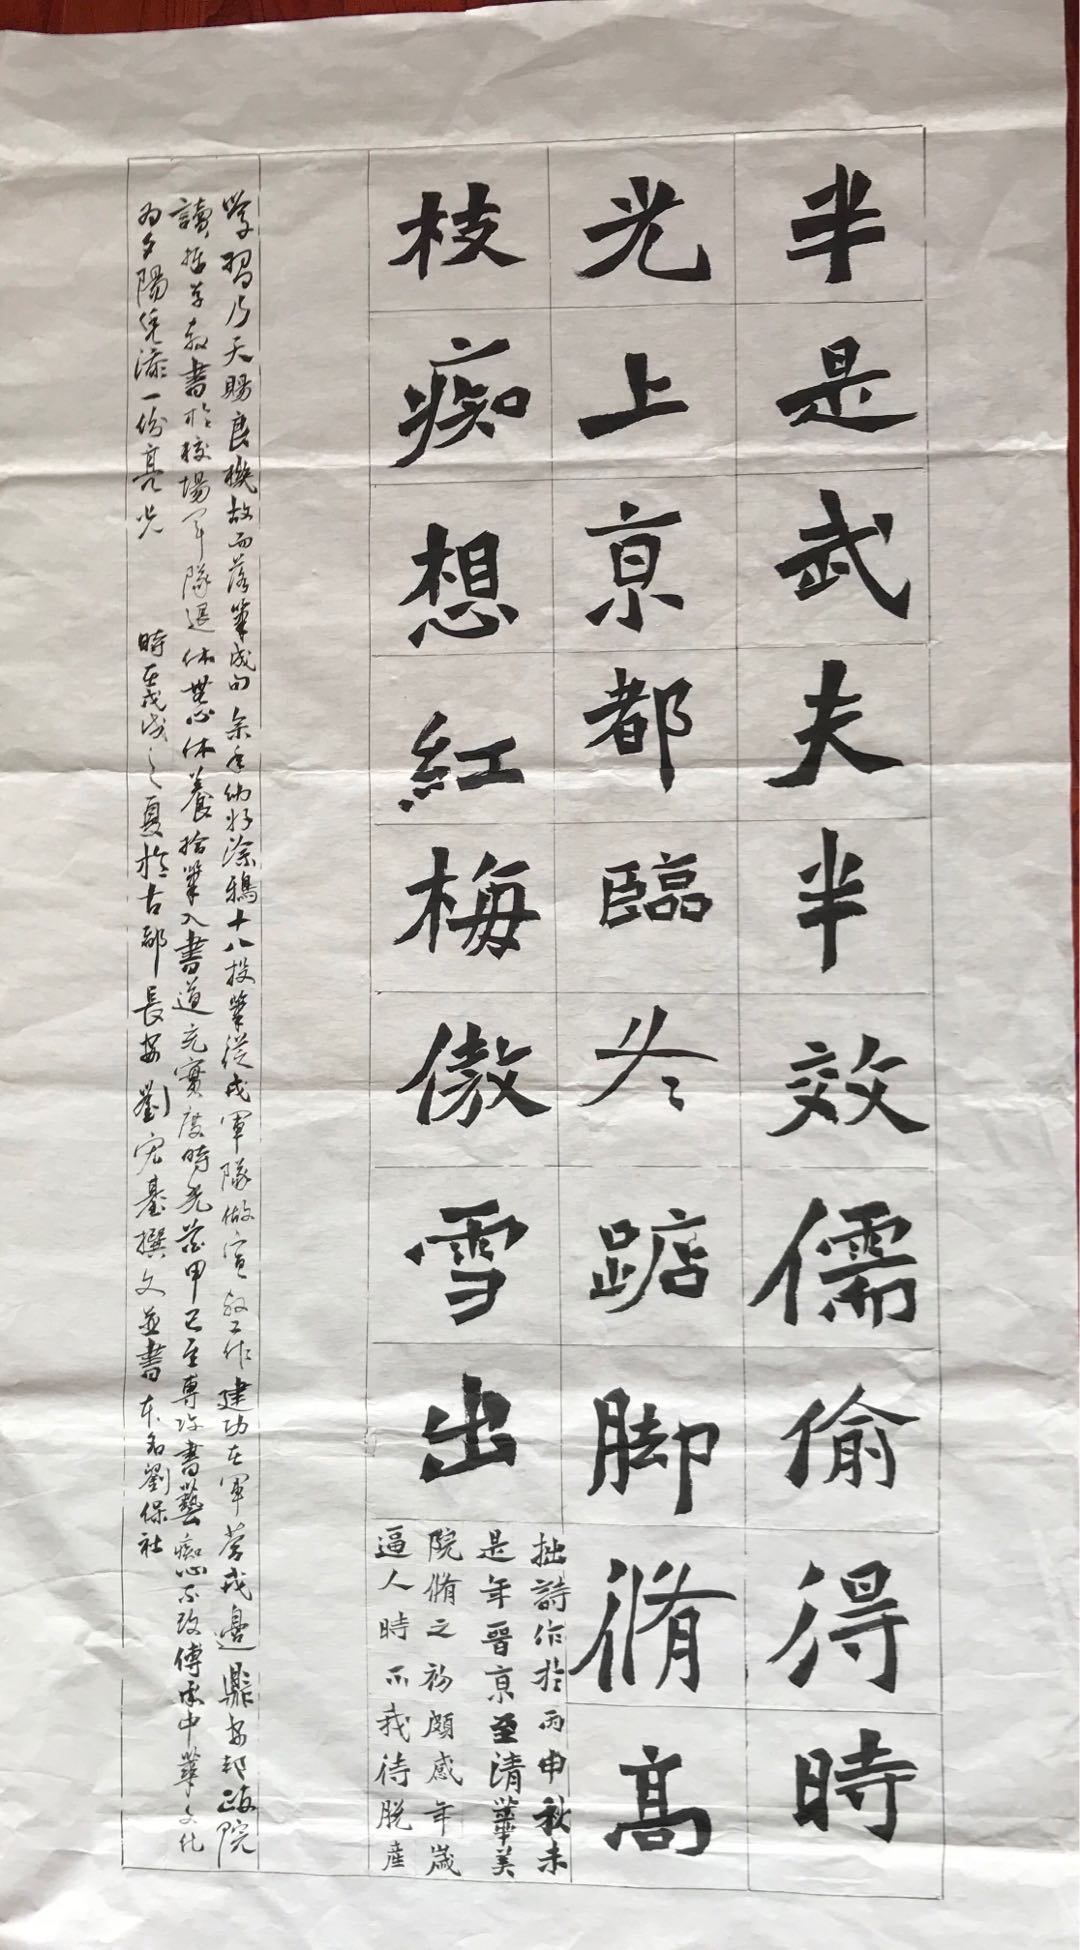 半是武夫半效儒偷得時
光上京都臨冬踮脚脩高
枝痴想紅梅傲雪出
拙詩作於丙申秋末
是年晋京至清華美
院脩之初頗感年歲
逼人時不我待脱産
學習乃天賜良機故而落筆成句余年幼好塗鴉十八投筆從戎軍隊做宣教工作建功在軍營戎邊鼎安邦政院
讀哲學教書於校場軍隊退休無心休養拾筆入書道充實度時光花甲已至專攻書藝痴心不改傳承中華文化
為夕陽紅添一份亮光 時在戊戌之夏於古都長安劉宏臺撰文並書本名劉保社